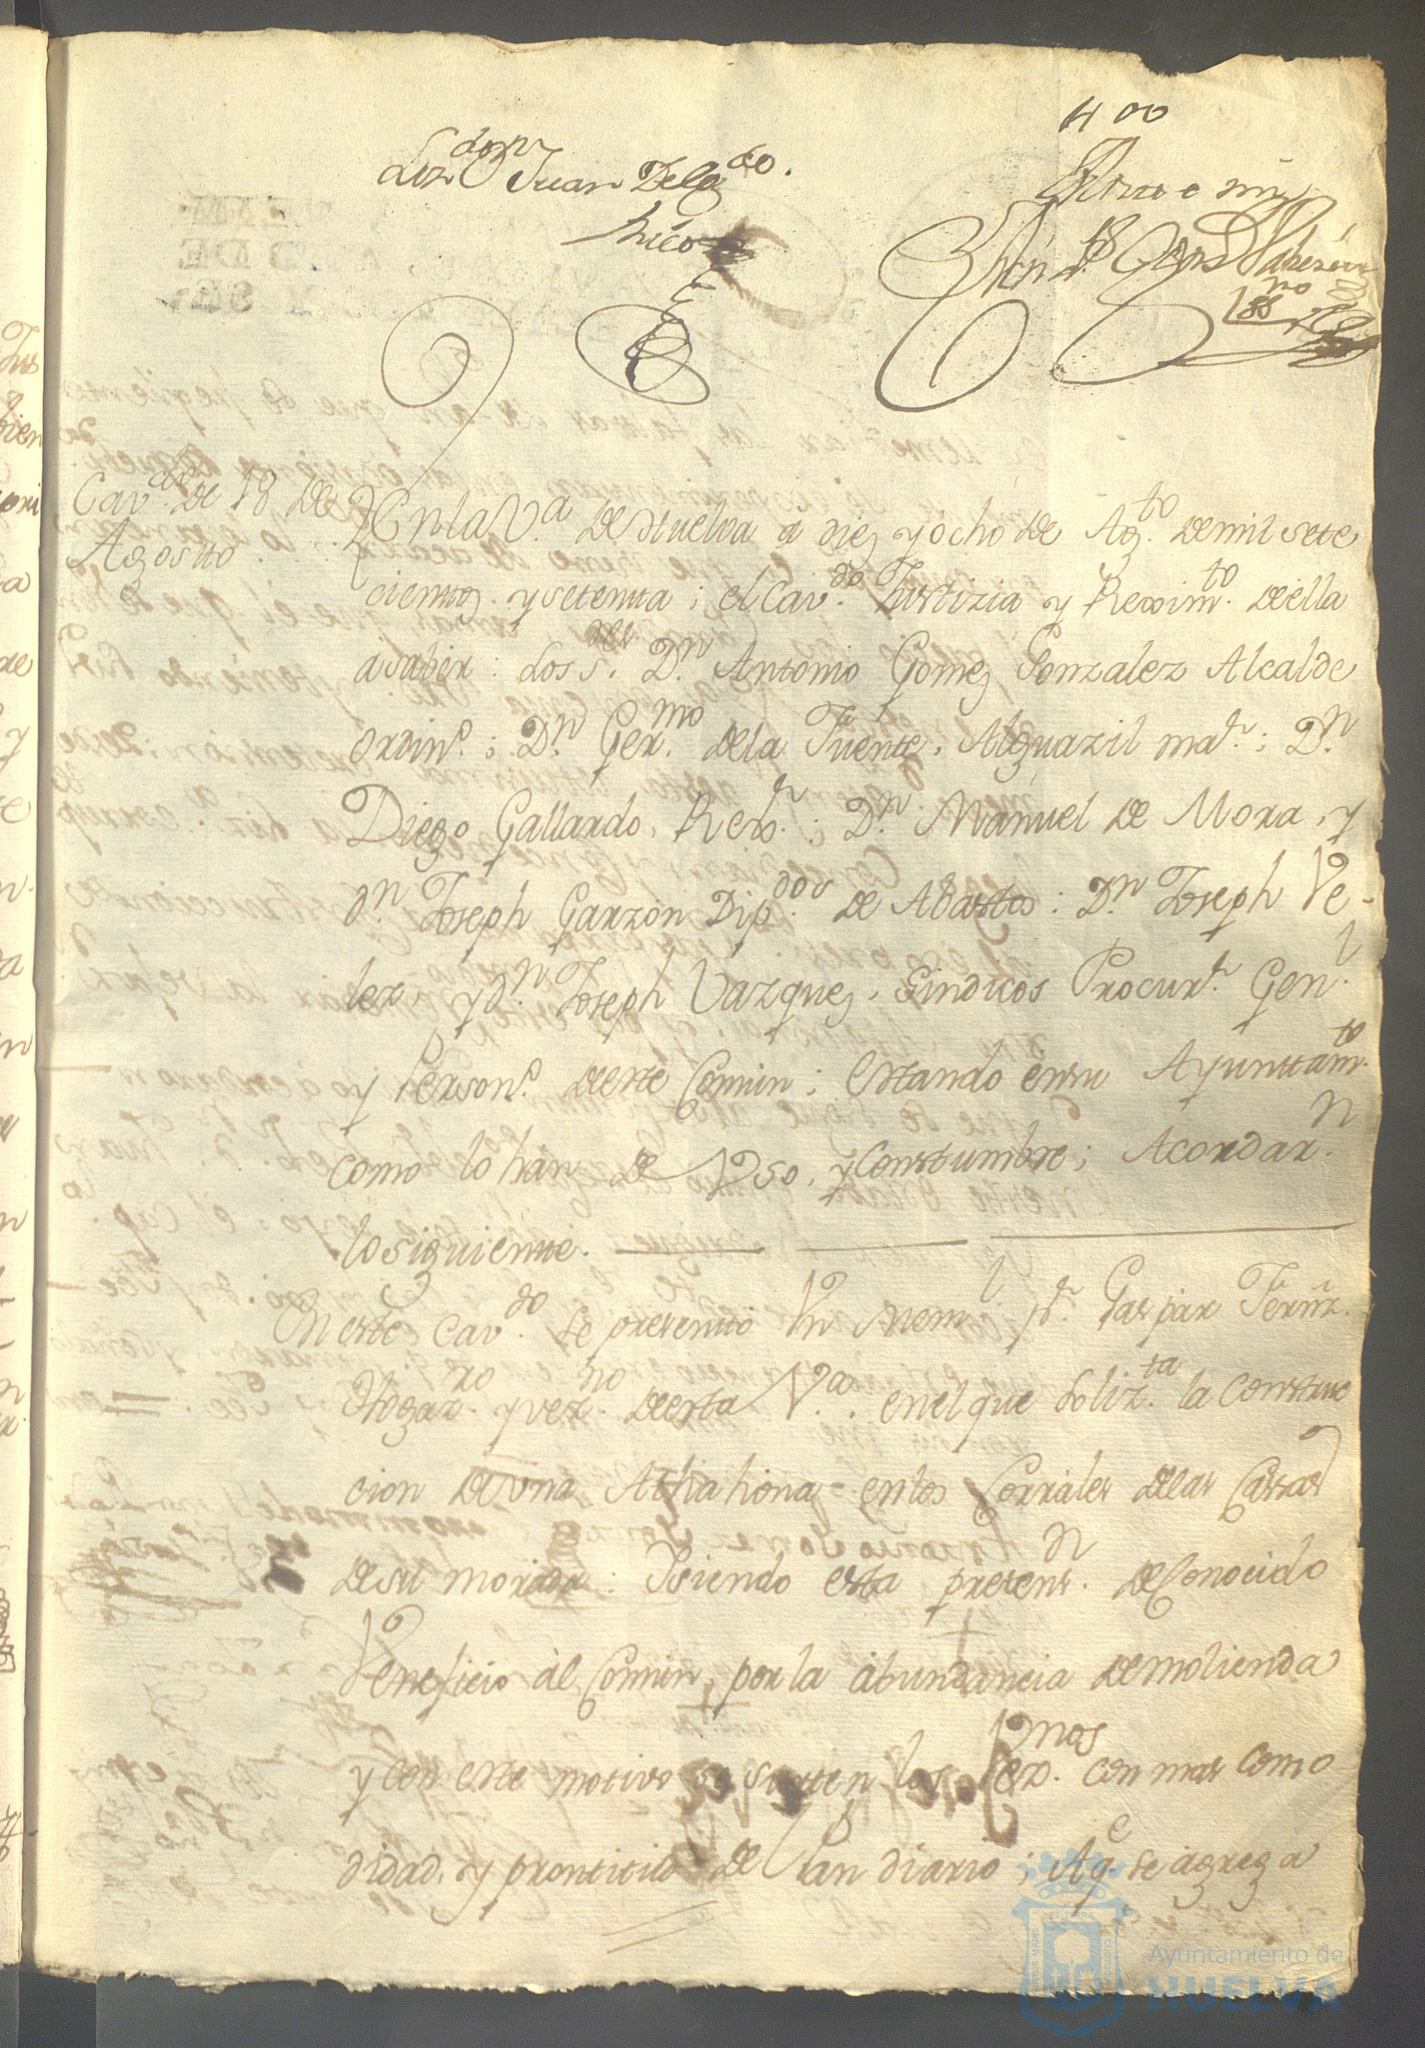 400
Liz.do D.n Juan Delg.do
Rico
Antte mi
Cav.do de 18 de
Agosto
En la V.a de Huelva a diez y ocho de Ag.to de mil sete
cientos y setenta; el Cav.do Justizia y Rexim.to de ella
a saber: Los S.res D.n Antonio Gomez Gonzalez Alcalde
ordin.o; D.n Ger.mo de la Fuente, Alguazil ma.r; D.n
Diego Gallardo, Rex.r; D.n Manuel de Mora, y
d.n Joseph Garzon Dip.dos de Abastos: D.n Joseph Ve-
lez y d.n Joseph Vazquez, Sindicos Procur.r Gen.l
y Person.o de este Comun; estando en su Ayunttam.to
como lo han de Vso, y Constumbre; Acordar.n
lo siguiente.
En este Cav.do se presentto Vn Mem.l p.r Gaspar Fernz.
Hogaz.ro y vez.no de esta V.a en el que soliz.ta la Construc
cion de vna Athahona en los Corrales de las Casas
de su morada: Y siendo esta pretens.n de Conocido
Veneficio al Comun, por la abundancia de molienda
y con este motivo se surtten los Vez.nos con mas como
didad, y prontitud de Pan diario; Aq.e se agrega
Ayuntamiento de
HUELVA